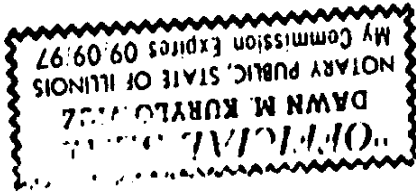 "OFFICIAL
DAWN M.
NOTARY PUBLIC, STATE OF ILLINOIS
My Commission Expires 09/09/97